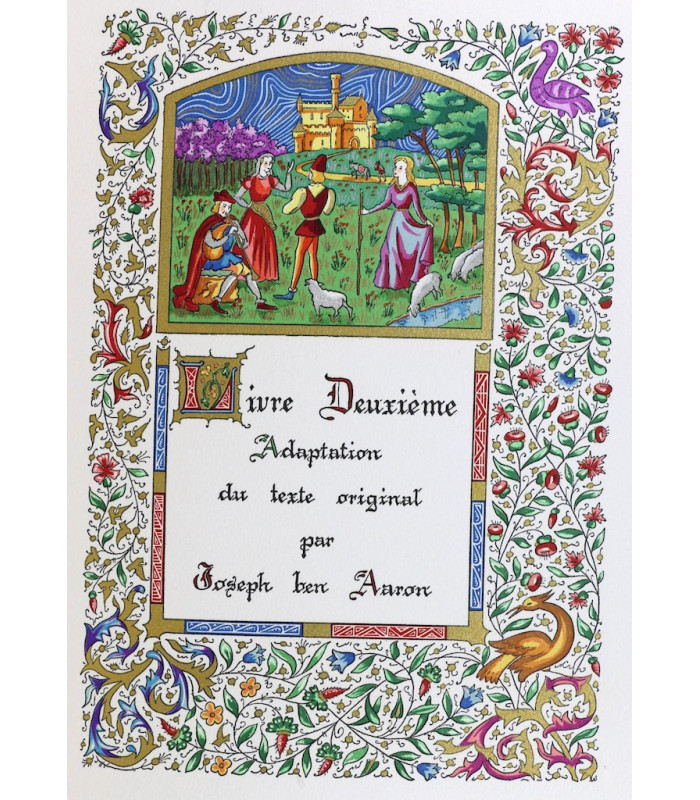 Livre Deuxième
Adaptation
du texte original
par
Joseph ben Aaron